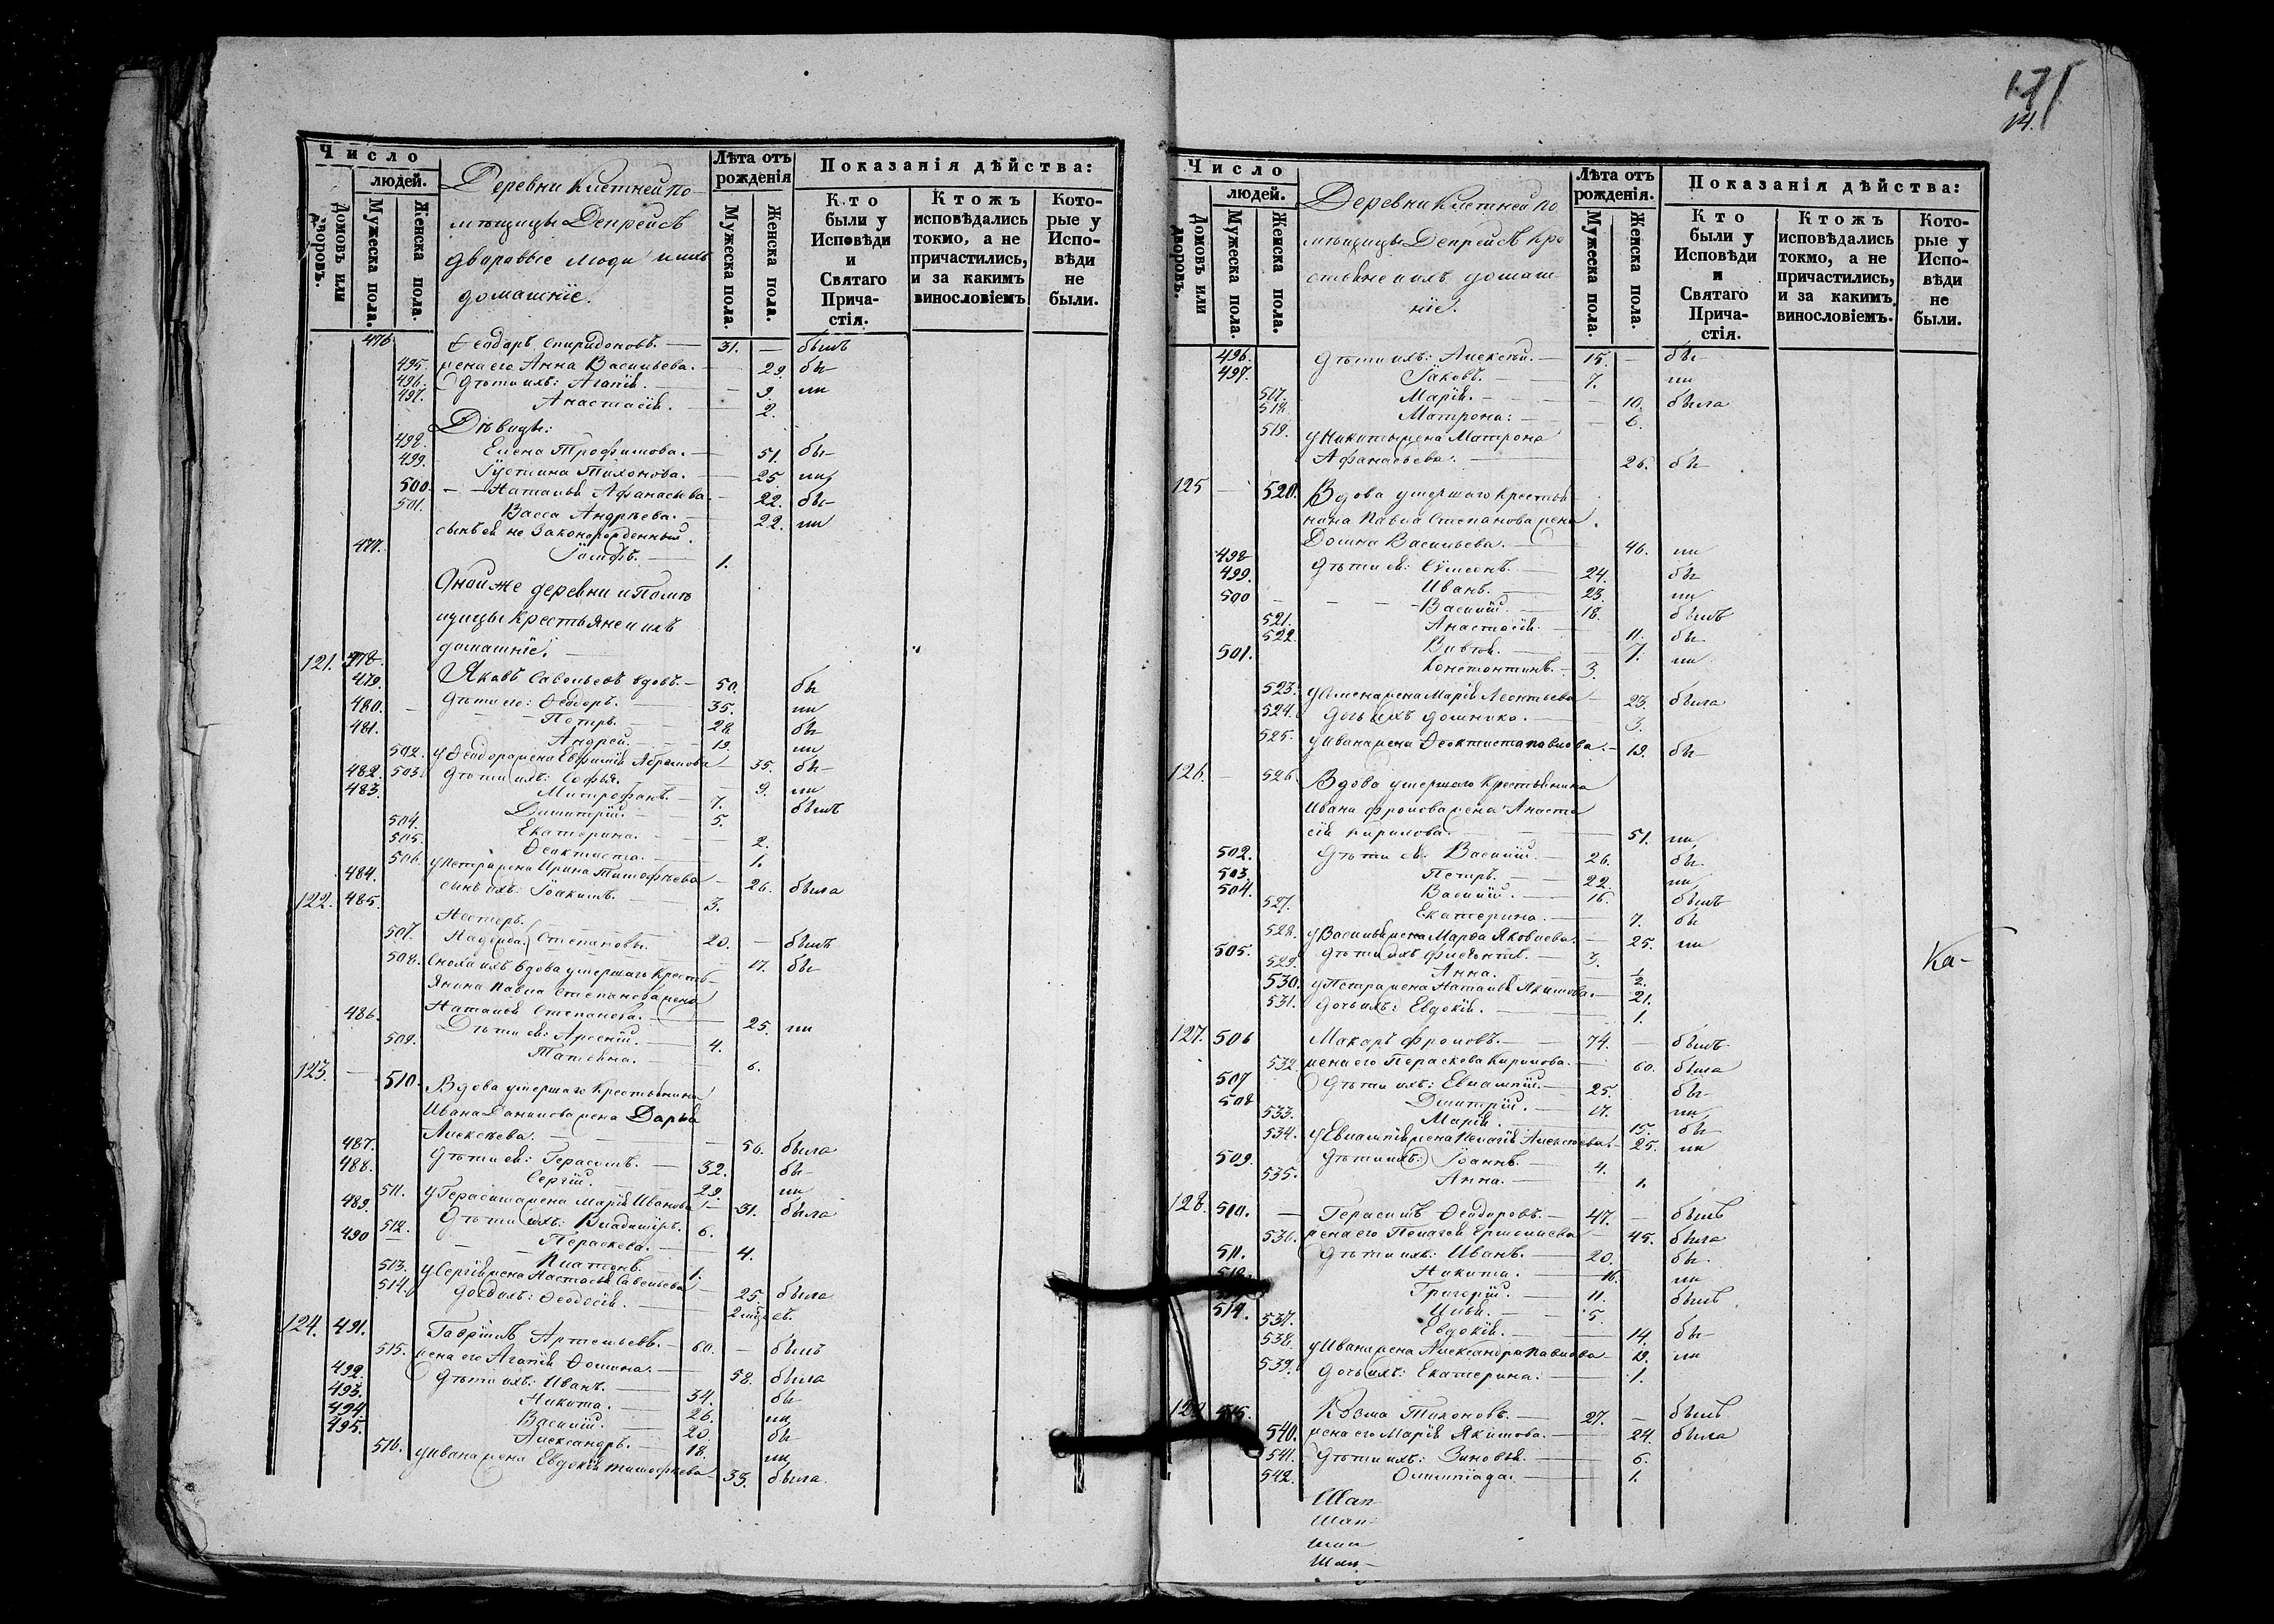 Число
людей.
Домовъ или дворовъ.
Мужеска пола.
Женска пола.
Деревни Кистней по-
мѣщицы Депрейсъ
дваровые люди и ихъ
домашніе.
Лѣта отъ рожденія
Мужеска пола.
Женска пола.
Показанія дѣйства:
Кто были у Исповѣди и Святаго Прича-стія.
Ктожъ исповѣдались токмо, а не причастились, и за какимъ винословіемъ
Кото-рые у Испо-вѣди не были.
476 Ѳеодоръ Спиридоновъ. — 31. — былъ
495. жена его Анна Васильева. — 29. бы-
496. Дѣти ихъ: Агапія. — 9. ли
497. Анастасія. — 2.
Дѣвицы:
498. Елена Трофимова. — 51. бы-
499. Іустина Тихонова. — 25. ли
500. Наталья Афанасьева — 22. бы-
501. Васса Андрѣева. — 22. ли
сынъ ей не Законорожденный.
477. — 1.
Оной же деревни и Помѣ
щицы Крестьяне и ихъ
домашніе.
121. 478. Яковъ Савельевъ вдовъ. — 50. бы
479. Дѣти его: Ѳеодоръ. — 35. ли
480. Петръ. — 28. бы
481. Андрей. — 19. ли
502. у Ѳеодора жена Евфимія Абрамова — 35. бы-
503. Дѣти ихъ: Софья. — 9. ли
482. Митрофанъ. — 7. былъ
483. Димитрій. — 5.
504. Екатерина. — 2.
505. Ѳеоктиста. — 1.
506. у Петра жена Ирина Тимофѣева — 26. была
484. сынъ ихъ: Іоакимъ. — 3.
122. 485. Нестеръ. Степановъ. — 20. — былъ
507. Надежда. 17. бы
508. Сноха ихъ вдова умершаго Кресть-
янина Павла Степанова жена
Наталья Степанова. — 25. ли
486. Дѣти ей: Арсеній. — 4.
509. Татьяна. — 6.
123. — 510. Вдова умершаго Крестьянина
Ивана Данилова жена Дарья
Алексѣева. — 56. была
487. Дѣти ей: Герасимъ. — 32. бы
488. Сергій. — 29. ли
511. у Герасима жена Марія Иванова — 31. была
489. Дѣти ихъ: Владиміръ. 6.
512. Параскева. — 4.
490 Платонъ. — 1.
513. у Сергія жена Настасья Савельева — 25. была
514. дочь ихъ: Ѳеодосія. —
124. 491. Гавріилъ Артемьевъ. — 60. — былъ
515. жена его Агапія Ѳомина. — 58. была
492. Дѣти ихъ: Иванъ. — 34. бы
493. Никита. — 26. ли
494. Василій. — 20. бы
495. Александръ. — 18. ли
516. у Ивана жена Евдокія Тимофѣева — 33. была.
171
14.
Число
людей.
Домовъ или дворовъ.
Мужеска пола.
Женска пола.
Деревни Кистней по
мѣщицы Депрейсъ кре
стьяне и ихъ домаш-
ніе.
Лѣта отъ рожденія.
Мужеска пола.
Женска пола.
Показанія дѣйства:
Кто были у Исповѣди и Святаго Прича-стія.
Ктожъ исповѣдались токмо, а не причастились, и за какимъ винословіемъ.
Кото-рые у Испо-вѣди не были.
496. Дѣти ихъ: Алексѣй. — 15. — бы-
497. Іаковъ. — 7. ли
517. Марія. — 10. была
518. Матрона: — 6.
519. у Никиты жена Матрона
Афанасьева. — 26. бы-
125 — 520. Вдова умершаго Крестья
нина Павла Степанова жена
Домна Васильева. — 46. ли
498 Дѣти ей: Сѵмеонъ. — 24. бы
499. Иванъ. — 23. ли
500 Василій. — 18. былъ
521. Анастасія. — 11. бы
522. — 7. ли
501. Константинъ. — 3.
523. у Семена жена Марія Леонтьева — 23. была
524. дочь ихъ Домника. — 3.
525. у Ивана жена Ѳеоктиста Павлова. — 19. бы-
126. — 526. Вдова умершаго Крестьянина
Ивана Фролова жена Анаста
сія Кирилова. — 51. ли
502. Дѣти ей: Василій. — 26. бы
503. Петръ. — 22. ли
504. Василій. — 16. былъ
527. Екатерина. — 7. бы
528. у Василья жена Марѳа Яковлева. — 25. ли
505. Дѣти ихъ — 3.
529. Анна. — 2.
530. у Петра жена Наталья Якимова. — 21.
531. дочь ихъ: Евдокія. — 1.
Ка-
127. 506 Макаръ Фроловъ. — 74. — былъ.
532. жена его Пераскева Кирилова. — 60. была
507 Дѣти ихъ: Евлампій. — 25. бы-
508 Дмитрій. — 17. ли
533. Марія. — 15. бы-
534. у Евлампія жена Пелагія Алексѣева. — 25. ли
509. Дѣти ихъ: Іоаннъ. — 4.
535. Анна. — 1.
128. 510. — Герасимъ Ѳеодоровъ. — 47. — былъ
536. жена его Пелагея Ермолаева — 45. была
511. Дѣти ихъ: Иванъ. — 20. бы.
512. Никита. — 16. ли
Григорій. — 11. былъ
514. Илья. — 5.
537. Евдокія. — 14. бы-
538. у Ивана жена Александра Павлова — 19. ли
539. дочь ихъ: Екатерина. — 1.
129 515. Козма Тихоновъ. — 27. — былъ
540. жена его Марія Якимова. — 24. была
541. Дѣти ихъ: Зиновья. — 6.
542. Олимпіада. — 1.
Шап
Шап-
Шап-